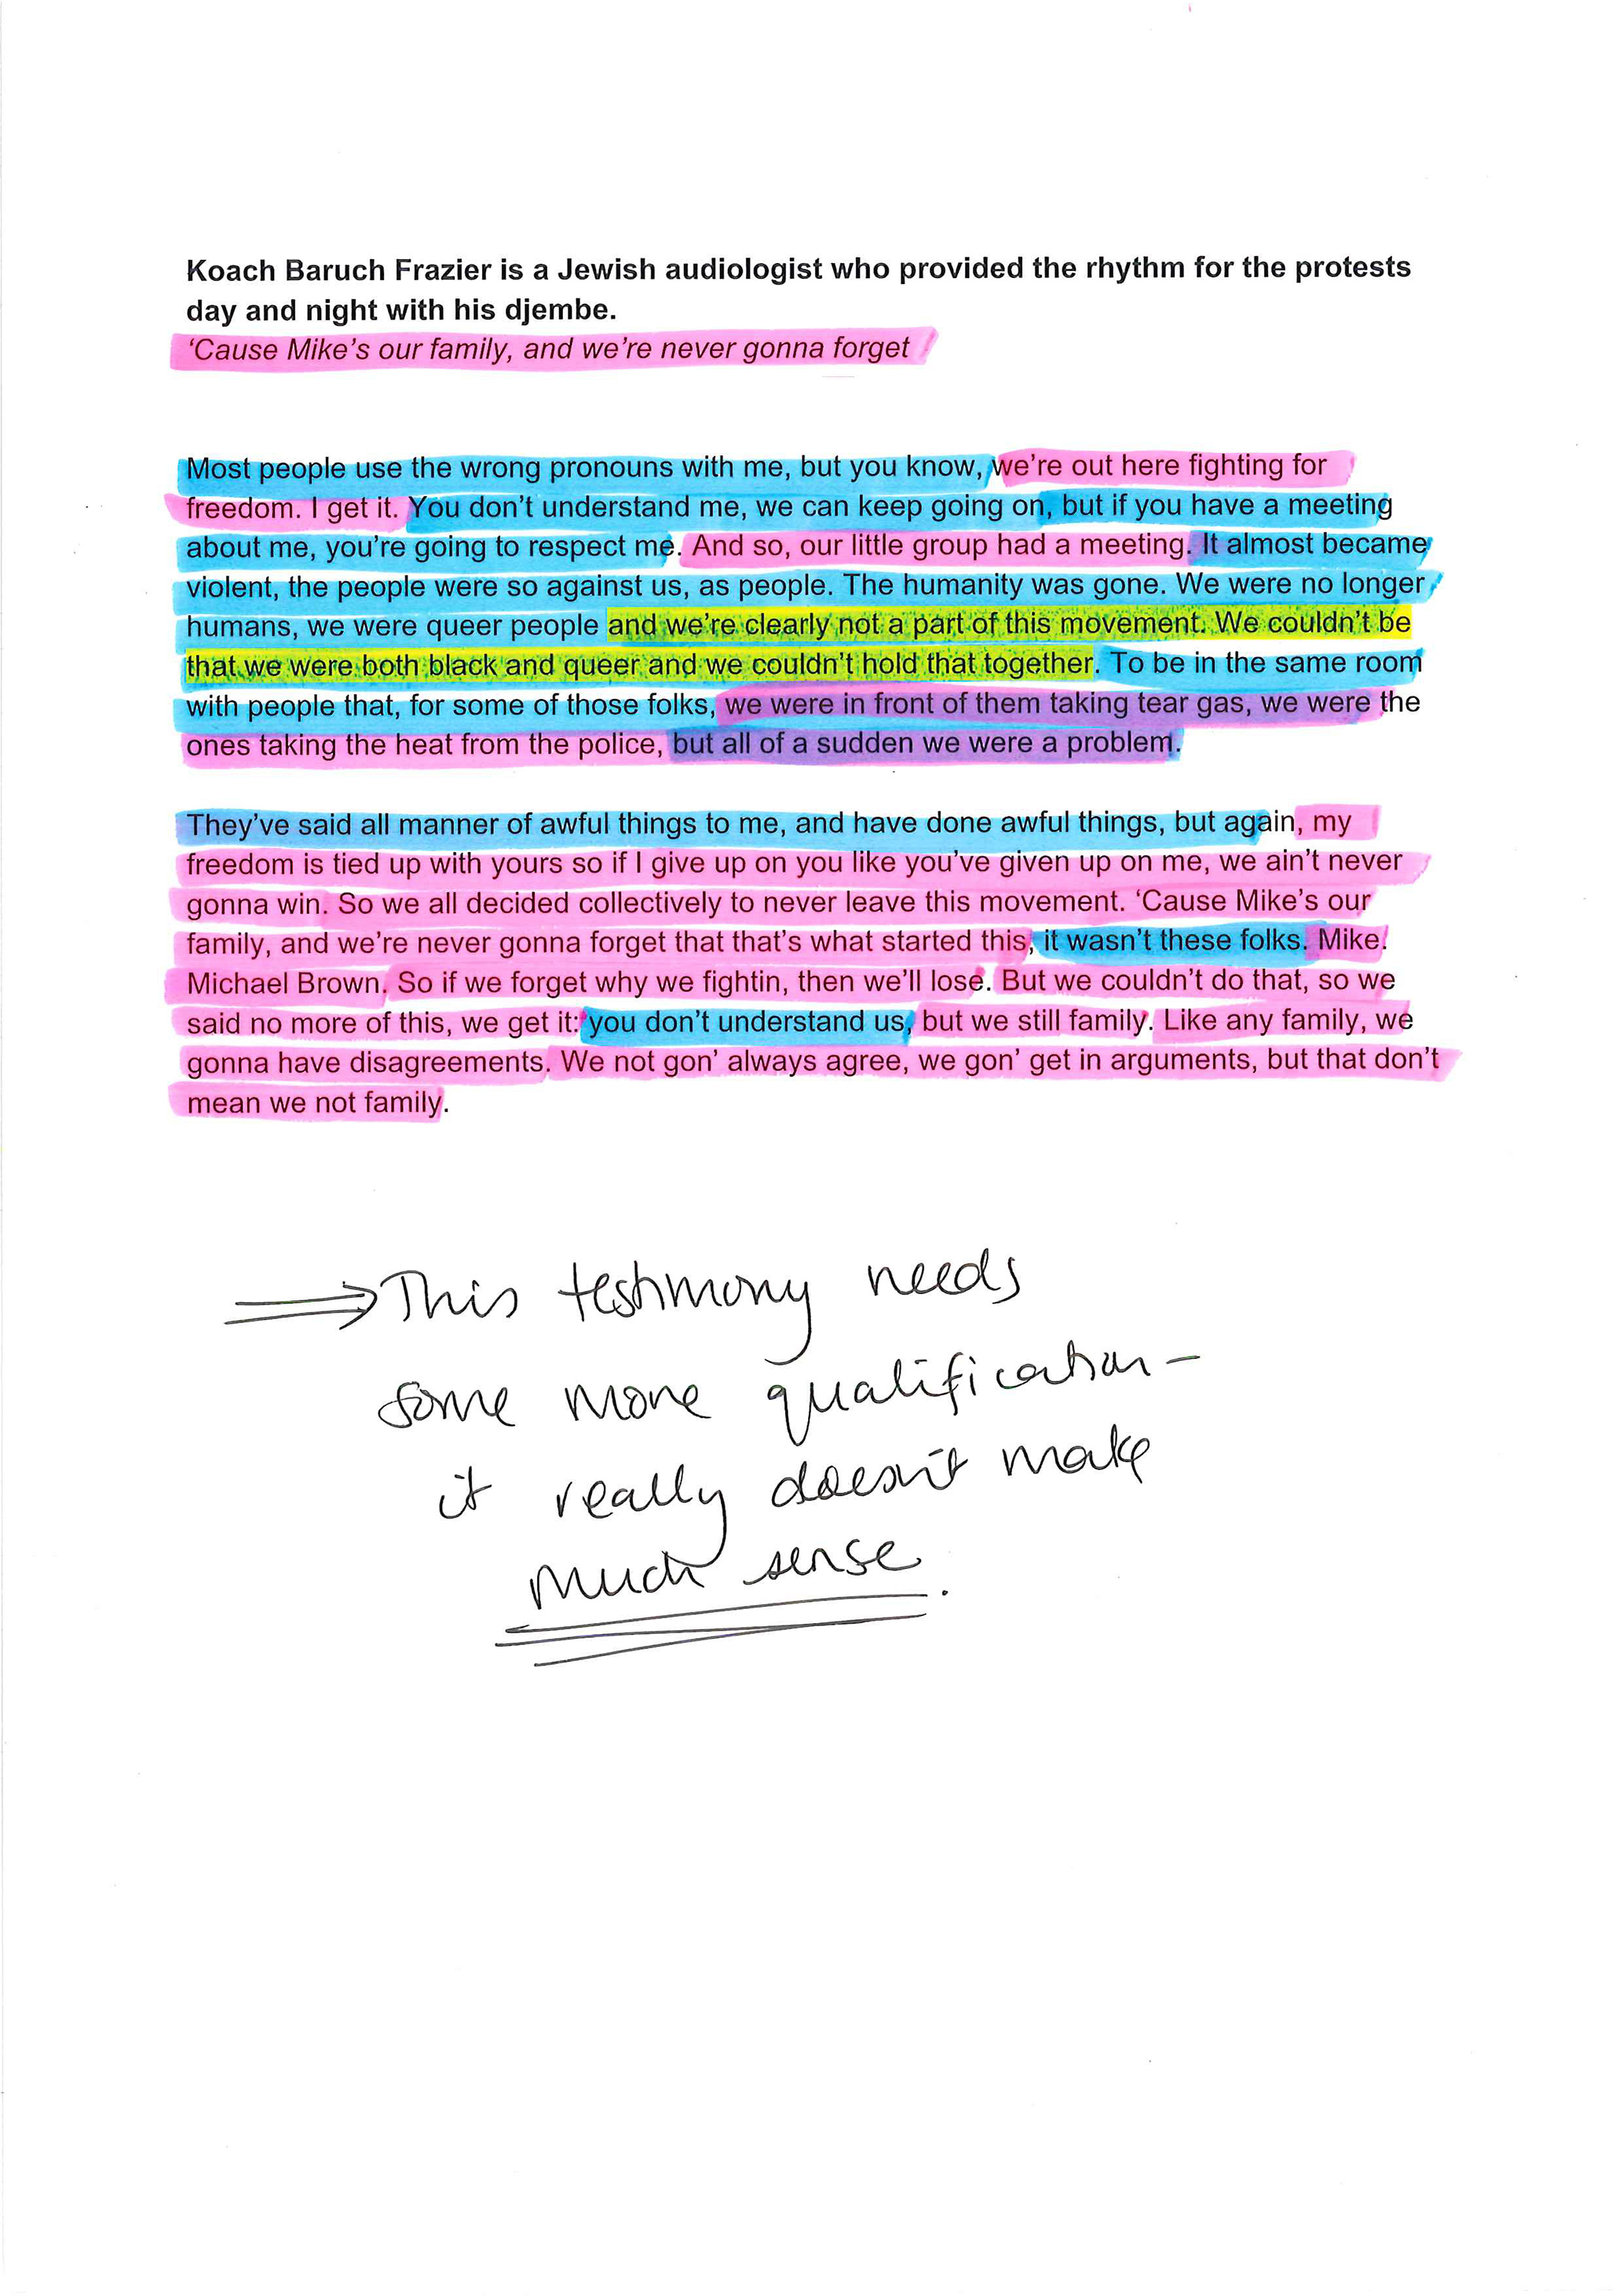 Koach Baruch Frazier is a Jewish audiologist who provided the rhythm for the protests
day and night with his djembe.
‘Cause Mike’s our family, and we’re never gonna forget
Most people use the wrong pronouns with me, but you know, we’re out here fighting for
freedom. I get it. You don’t understand me, we can keep going on, but if you have a meeting
about me, you’re going to respect me. And so, our little group had a meeting. It almost became
violent, the people were so against us, as people. The humanity was gone. We were no longer
humans, we were queer people and we’re clearly not a part of this movement. We couldn’t be
that we were both black and queer and we couldn’t hold that together. To be in the same room
with people that, for some of those folks, we were in front of them taking tear gas, we were the
ones taking the heat from the police, but all of a sudden we were a problem.
They’ve said all manner of awful things to me, and have done awful things, but again, my
freedom is tied up with yours so if I give up on you like you’ve given up on me, we ain’t never
gonna win. So we all decided collectively to never leave this movement. ‘Cause Mike’s our
family, and we’re never gonna forget that that’s what started this, it wasn’t these folks. Mike.
Michael Brown. So if we forget why we fightin, then we’ll lose. But we couldn’t do that, so we
said no more of this, we get it: you don’t understand us, but we still family. Like any family, we
gonna have disagreements. We not gon’ always agree, we gon’ get in arguments, but that don’t
mean we not family.
⇒ This testimony needs
some more qualification –
it really doesn't make
much sense.